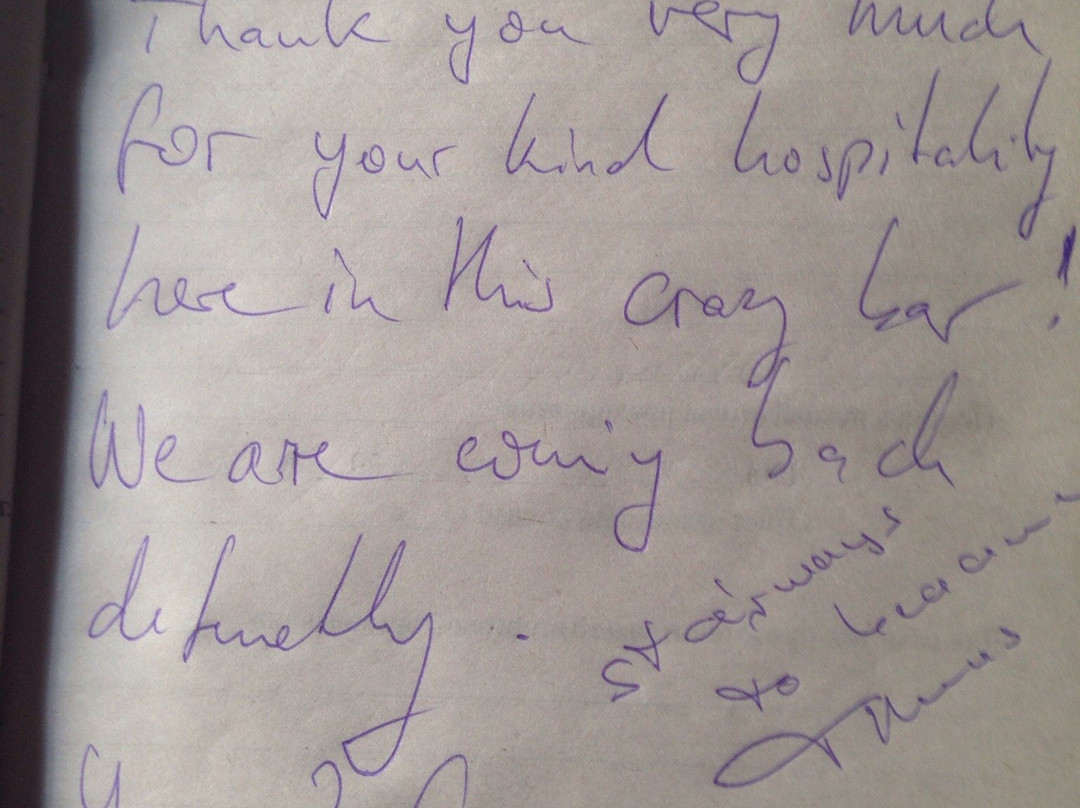 Thank you very much
for your kind hospitality
here in this crazy bar!
We are coming back
definetly.
stairways
to